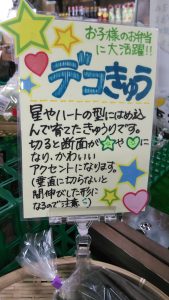 お子様のお弁当
に大活躍!!
デコきゅう
星やハートの型にはめ込
んで育てたきゅうりです。
切ると断面が☆や♡に
なり、かわいい
アクセントになります。
(垂直に切らないと
間伸びした形に
なるので注意)